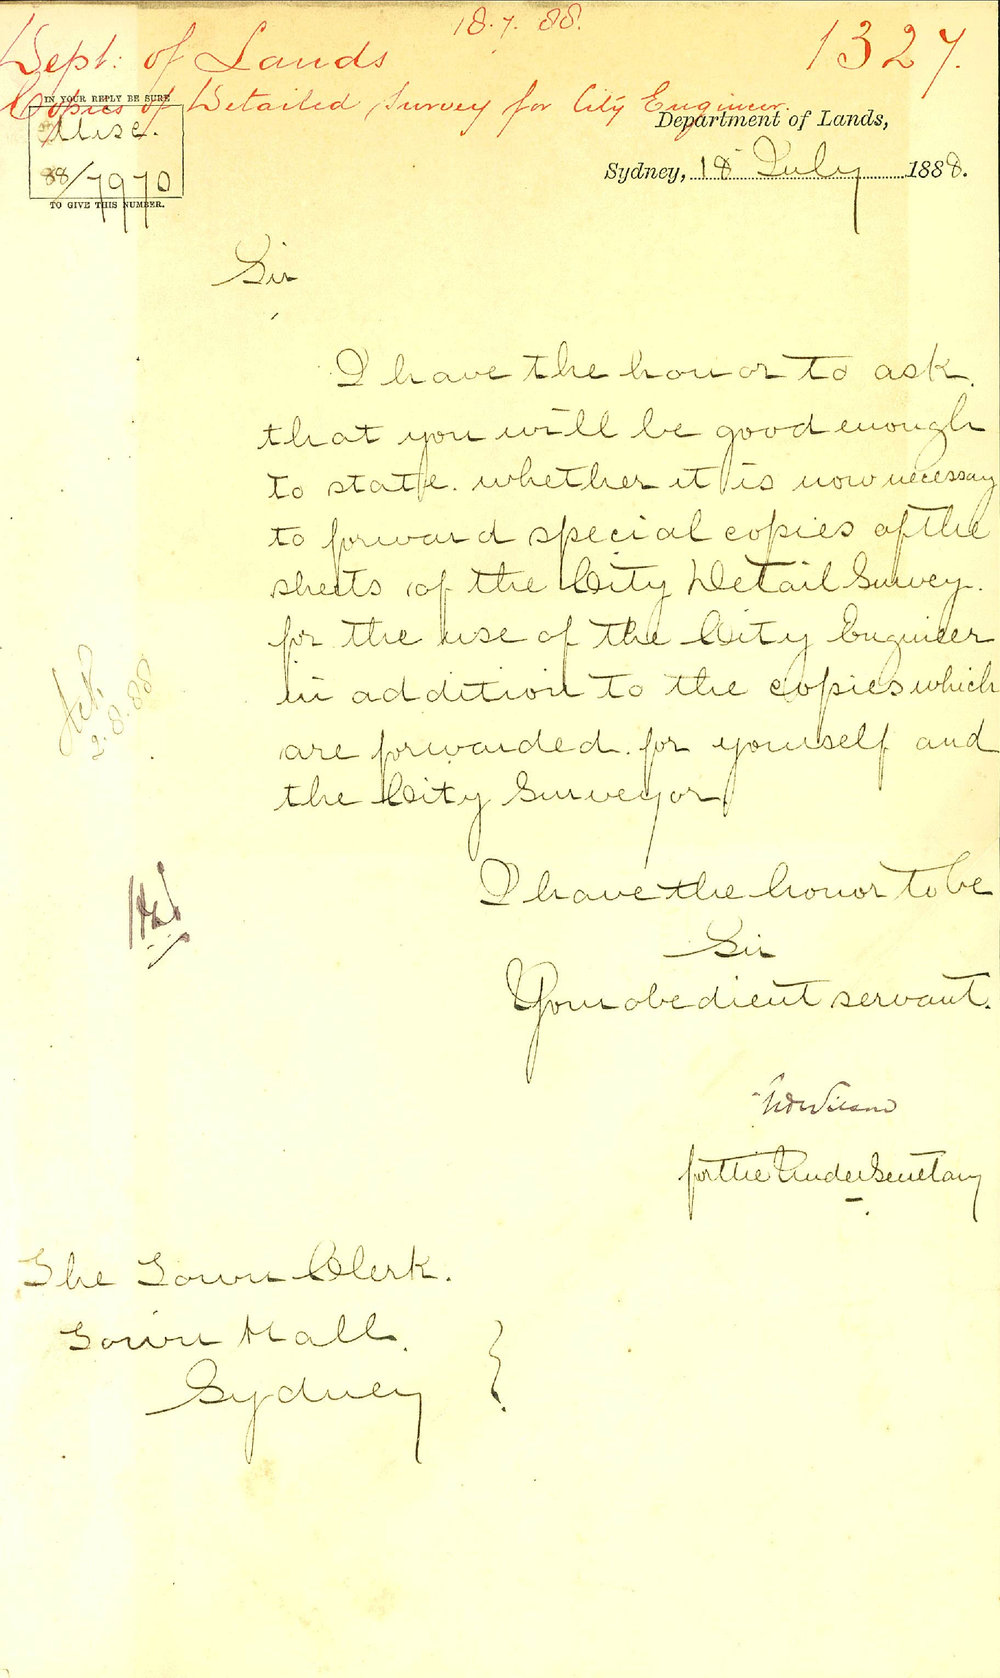 18.7.88.
Dept: of Lands
1327.
Copies of Detailed Survey for City Engineer.
IN YOUR REPLY BE SURE
Misc.
88/7970
TO GIVE THIS NUMBER.
Department of Lands,
Sydney, 18 July 1888.
Sir
I have the honor to ask
that you will be good enough
to state whether it is now necessary
to forward special copies of the
sheets of the City Detail Survey.
for the use of the City Engineer
in addition to the copies which
are forwarded for yourself and
the City Surveyor
2.8.88
I have the honor to be
Sir
Your obedient servant.
for the Under Secretary
The Town Clerk.
Town Hall
Sydney